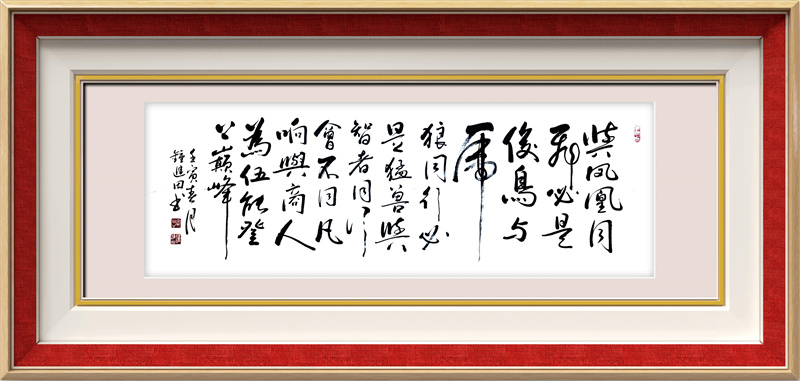 與凤凰同
飛必是
俊鳥与
虎
狼同行必
是猛兽與
智者同行
會不同凡
响與高人
為伍能登
上巔峰
壬寅春月
鍾進田书